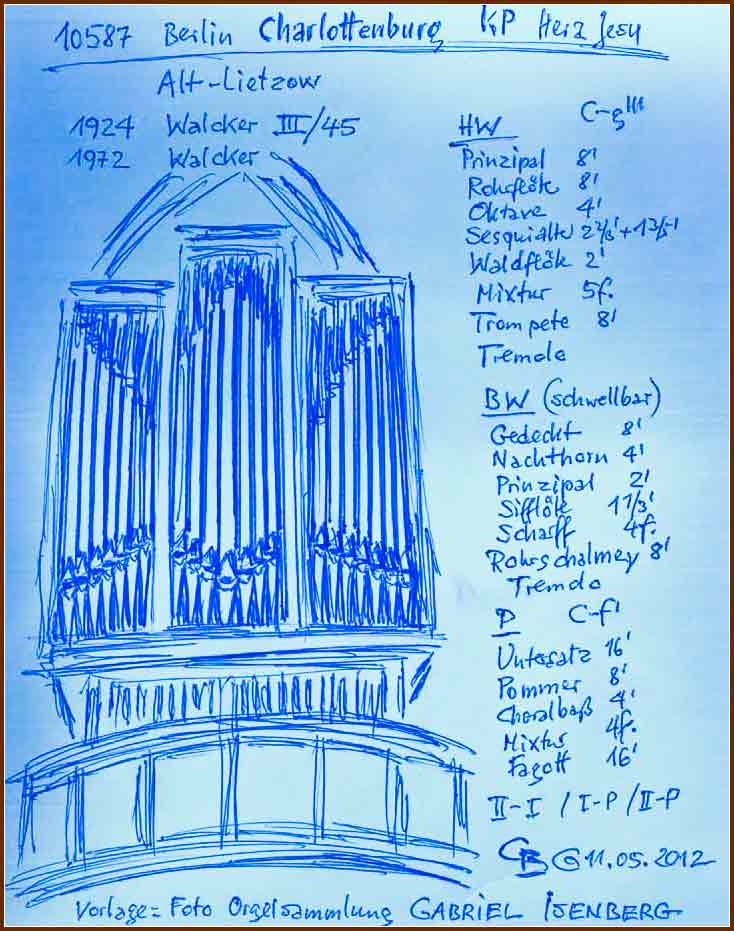 10587 Berlin Charlottenburg KP Herz Jesu
Alt-Lietzow
1924 Walcker III/45
1972 Walcker
C-g'''
HW
Prinzipal 8'
Rohrflöte 8'
Oktave 4'
Sesquialter 2 2/3' + 1 3/5'
Waldflöte 2'
Mixtur 5f.
Trompete 8'
Tremolo
BW (schwellbar)
Gedeckt 8'
Nachthorn 4'
Prinzipal 2'
Sifflöte 1 1/3'
Scharff 4f.
Rohrschalmey 8'
Tremolo
P C-f'
Untersatz 16'
Pommer 8'
Choralbaß 4'
Mixtur 4f.
Fagott 16'
II-I / I-P / II-P
11.05.2012
Vorlage: Foto Orgelsammlung GABRIEL ISENBERG